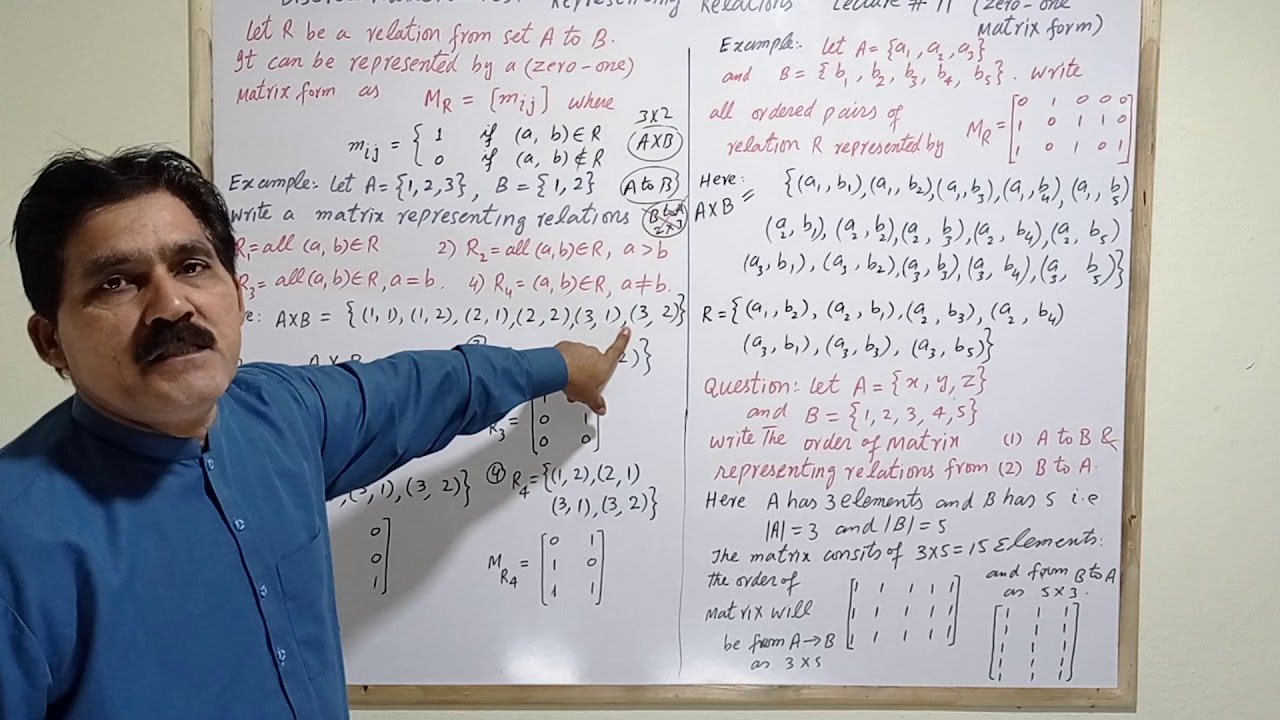 Representing Relations Lecture # 11 (zero-one
Matrix form)
Let R be a relation from set A to B.
It can be represented by a (zero-one)
Matrix form as M_R = [m_ij] where
m_ij = { 1 if (a, b) ∈ R
0 if (a, b) ∉ R
3x2
AXB
Example:- Let A = {1, 2, 3}, B = {1, 2}
A to B
Write a matrix representing relations
B to A
2x3
R_1 = all (a, b) ∈ R 2) R_2 = all (a, b) ∈ R, a > b
R_3 = all (a, b) ∈ R, a = b. 4) R_4 = (a, b) ∈ R, a ≠ b.
AXB = {(1, 1), (1, 2), (2, 1), (2, 2), (3, 1), (3, 2)}
AXB
2)}
R_3 = [
0 1
0 0]
(3, 1), (3, 2)}
④ R_4 = {(1, 2), (2, 1)
(3, 1), (3, 2)}
0]
0
1]
M_R4 = [0 1
1 0
1 1]
Example:- Let A = {a_1, a_2, a_3}
and B = {b_1, b_2, b_3, b_4, b_5}. Write
all ordered pairs of
relation R represented by
M_R = [0 1 0 0 0
1 0 1 1 0
1 0 1 0 1]
Here:
AXB = {(a_1, b_1), (a_1, b_2), (a_1, b_3), (a_1, b_4), (a_1, b_5)
(a_2, b_1), (a_2, b_2), (a_2, b_3), (a_2, b_4), (a_2, b_5)
(a_3, b_1), (a_3, b_2), (a_3, b_3), (a_3, b_4), (a_3, b_5)}
R = {(a_1, b_2), (a_2, b_1), (a_2, b_3), (a_2, b_4)
(a_3, b_1), (a_3, b_3), (a_3, b_5)}
Question: Let A = {x, y, z}
and B = {1, 2, 3, 4, 5}
Write The order of Matrix (1) A to B &
representing relations from (2) B to A.
Here A has 3 elements and B has 5 i.e
|A| = 3 and |B| = 5
The matrix consits of 3x5 = 15 Elements.
the order of
Matrix will
be from A → B
as 3x5
[1 1 1 1 1
1 1 1 1 1
1 1 1 1 1]
and from B to A
as 5x3.
[1 1 1
1 1 1
1 1 1
1 1 1
1 1 1]